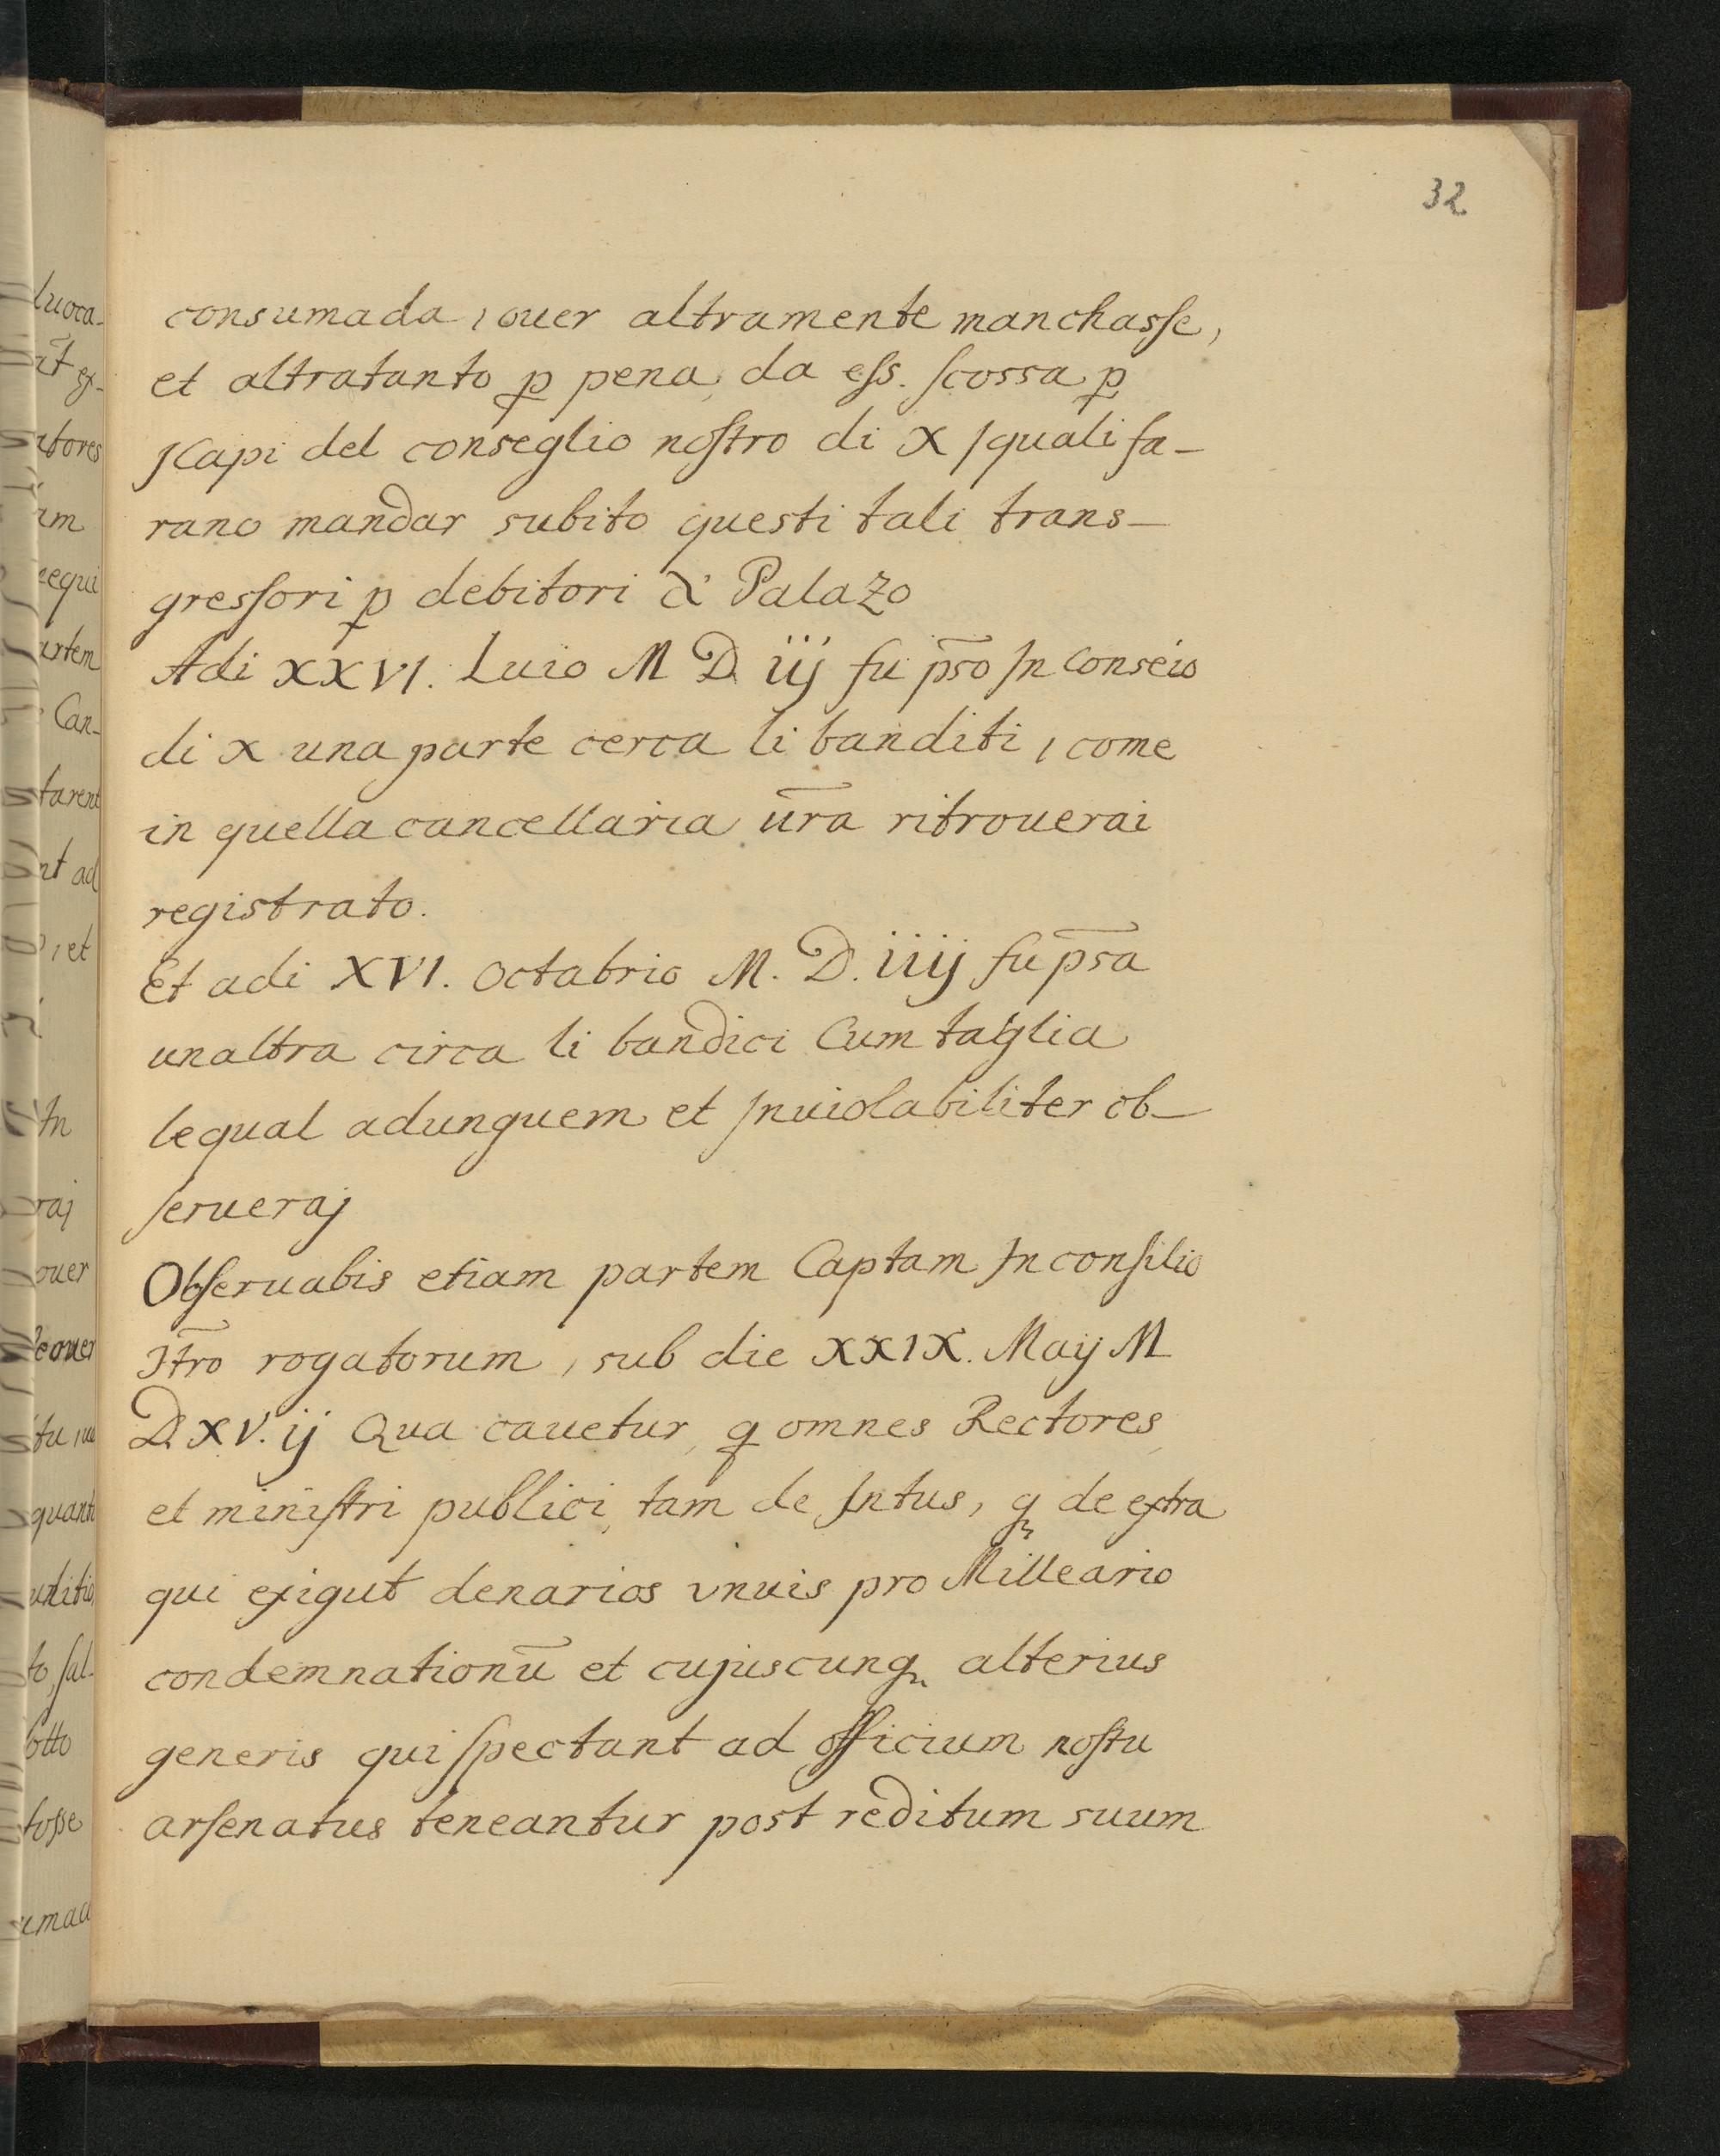 32
consumada, ouer altramente manchasse,
et altratanto ꝑ pena, da ess. scossa ꝑ
I Capi del conseglio nostro di X I quali fa-
rano mandar subito questi tali trans-
gressori ꝑ debitori d' Palazo
Adi XXVI. Luio M D iij fu p̄so In Conseio
di X una parte cerca li banditi, come
in quella cancellaria ur̄a ritrouerai
registrato.
Et adi XVI. Octabrio M. D. iiij fu p̄sa
unaltra circa li bandici Cum taglia
le qual adunguem et Inuiolabiliter ob-
serueraj
Obseruabis etiam partem Captam In consilio
Ɉt̄ro rogatorum, sub die XXIX. Maij M
D. XV. ij Qua cauetur, ꝙ omnes Rectores,
et ministri publici, tam de Intus, q̨ de extra
qui exigut denarios vnuis pro Milleario
condemnationū et cujuscunq̨ alterius
generis qui spectant ad officium nostu
arsenatus teneantur post reditum suum